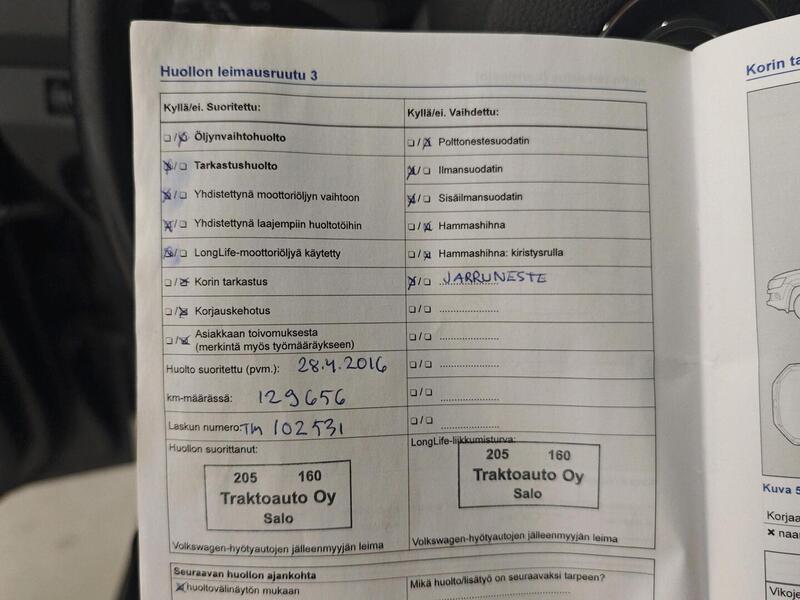 Huollon leimausruutu 3
Kyllä/ei. Suoritettu:
Öljynvaihtohuolto
Tarkastushuolto
Yhdistettynä moottoriöljyn vaihtoon
Yhdistettynä laajempiin huoltotöihin
LongLife-moottoriöljyä käytetty
Korin tarkastus
Korjauskehotus
Asiakkaan toivomuksesta
(merkintä myös työmääräykseen)
Huolto suoritettu (pvm.): 28.4.2016
km-määrässä: 129656
Laskun numero: TM 102531
Huollon suorittanut:
205 160
Traktoauto Oy
Salo
Volkswagen-hyötyautojen jälleenmyyjän leima
Kyllä/ei. Vaihdettu:
Polttonestesuodatin
Ilmansuodatin
Sisäilmansuodatin
Hammashihna
Hammashihna: kiristysrulla
JARRUNESTE
LongLife-liikkumisturva:
205 160
Traktoauto Oy
Salo
Volkswagen-hyötyautojen jälleenmyyjän leima
Seuraavan huollon ajankohta
huoltovälinäytön mukaan
Mikä huolto/lisätyö on seuraavaksi tarpeen?
Korin ta
Kuva 5
Korjaa
× naar
Vikoje